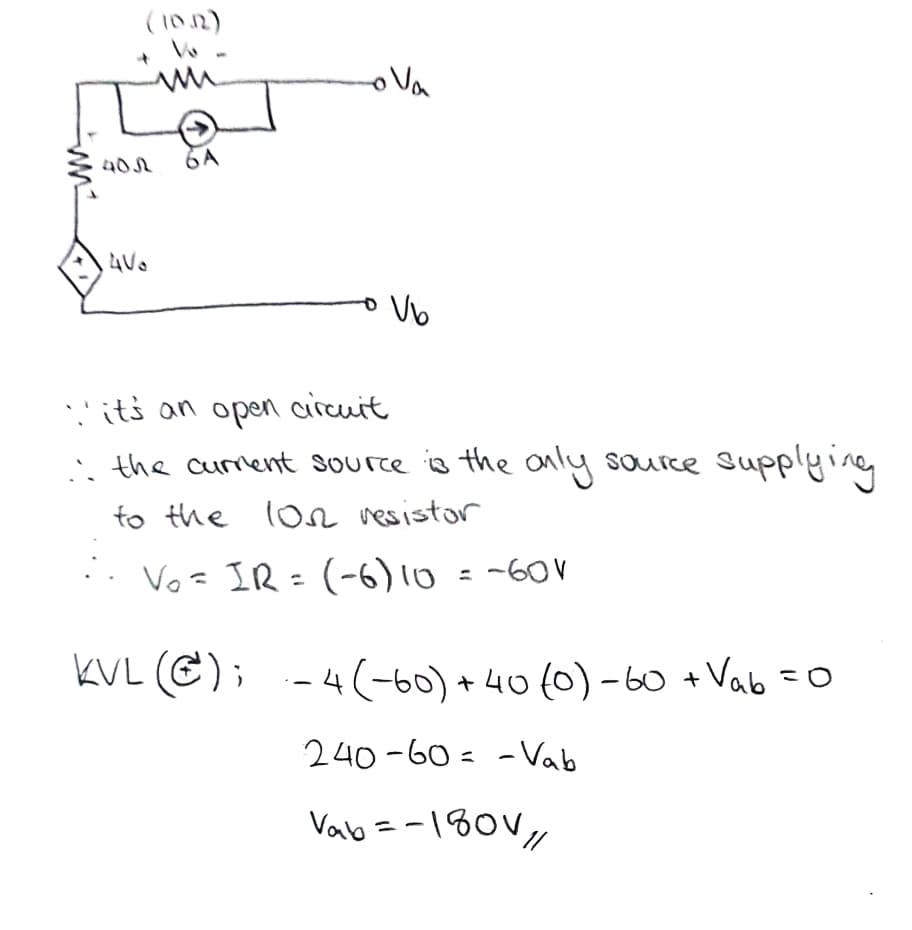 (10Ω)
+ Vo -
Va
-
40Ω
6A
+
+
-
4Vo
Vb
∵ it's an open circuit
∴ the current source is the only source supplying
to the 10Ω resistor
∴ Vo = IR = (-6)10 = -60V
KVL (↻+); -4(-60) + 40(0) - 60 + Vab = 0
240 - 60 = -Vab
Vab = -180V //